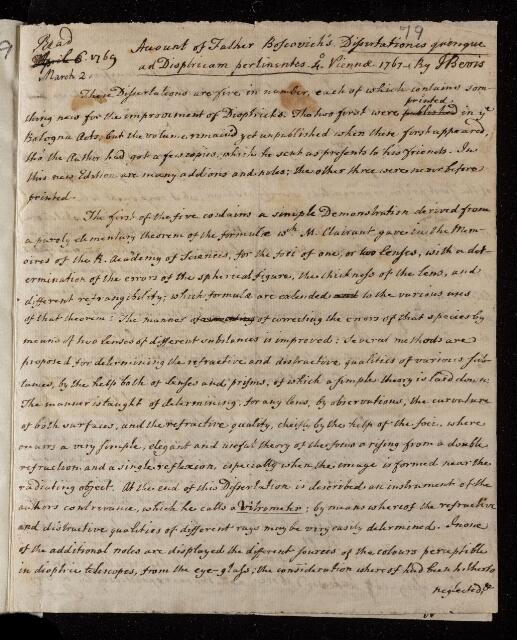 79
9
Read
April 6. 1769
March 2.
Account of Father Boscovich's Dissertationes quinque
ad Dioptricam pertinentes 4.º Viennæ 1767. By J Bevis
These Dissertations are five in number, each of which contains som-
thing new for the improvement of Dioptricks. The two first were published printed in yᵉ
Bologna Acts, but the volume remain'd yet unpublished when these first appeared,
tho' the Author had got a few copies, which he sent as presents to his friends. In
this new Edition are many additions and notes; the other three were never before
printed.
The first of the five contains a simple Demonstration derived from
a purely elementary theorem of the formulæ wᶜʰ M. Clairaut gave in the Mem-
oires of the R. Academy of Sciences, for the foci of one, or two lenses, with a det-
ermination of the errors of the spherical figure, the thickness of the lens, and
different refrangibility; which formulæ are extended to the various uses
of that theorem: The manner of of correcting the errors of that species by
means of two lenses of different substances is improved: Several methods are
proposed for determining the refractive and distractive qualities of various sub-
tances, by the help both of lenses and prisms, of which a simple theory is laid down:
The manner is taught of determining, for any lens, by observations, the curvature
of both surfaces, and the refractive quality, chiefly by the help of the foci. where
occurrs a very simple, elegant and useful theory of the focus arising from a double
refraction and a single reflexion, especially when the image is formed near the
radiating object. At the end of this Dissertation is described an instrument of the
authors contrivance, which he calls a Vitrometer; by means whereof the refractive
and distractive qualities of different rays may be very easily determined. In one
of the additional notes are displayed the different sources of the colours perceptible
in dioptric telescopes, from the eye-glass; the consideration whereof had been hitherto
neglected,